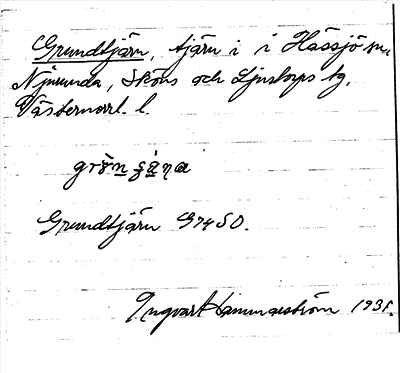 Grundtjärn, tjärn i i Hässjö sn,
Njurunda, Sköns och Ljustorps tg,
Västernorrl. l.
Grundtjärn G74SO.
Ingvar Hammarström 1931.